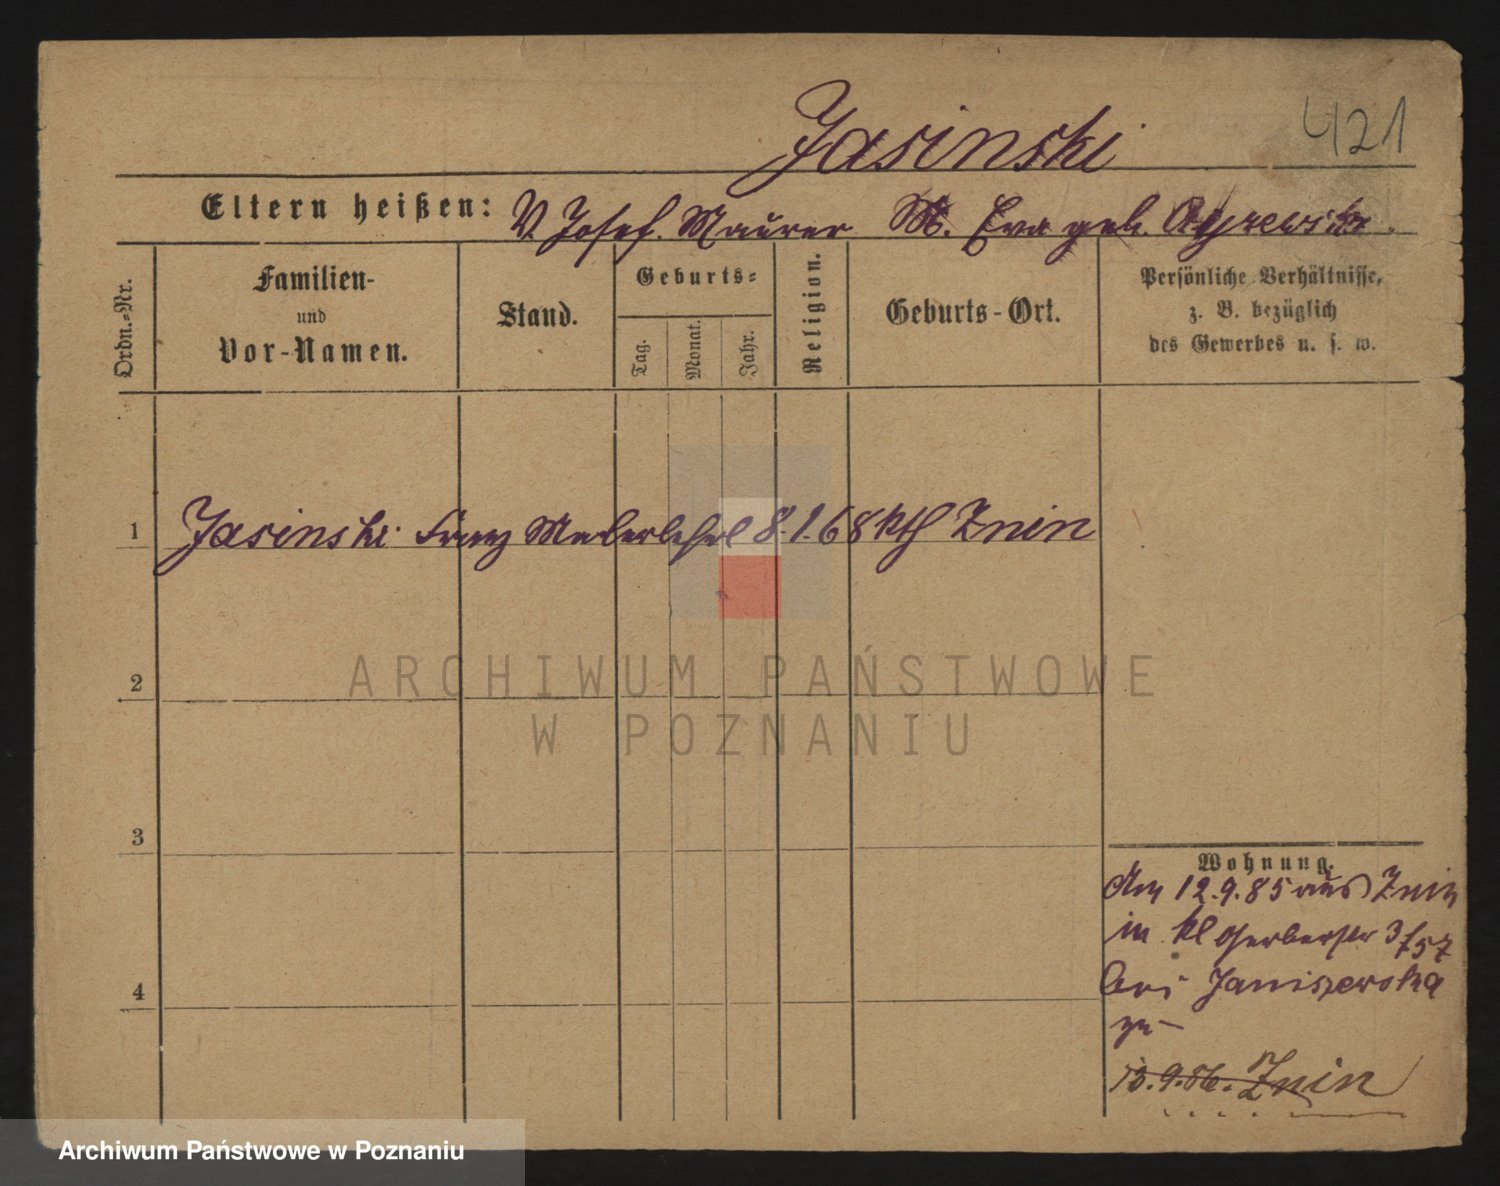 Jasinski
421
Eltern heißen: V. Josef. Maurer M. Eva geb.
Ordn.-Nr.
Familien-
und
Vor-Namen.
Stand.
Geburts-
Tag.
Monat.
Jahr.
Religion.
Geburts-Ort.
Persönliche Verhältnisse,
z. B. bezüglich
des Gewerbes u. s. w.
1 Jasinski Franz Malerlehrl 8. 1. 68 kth Znin
2
3
4
Wohnung.
Am 12.9.85 aus Znin
in kl Gerberstr 3/57
bei Janiszewska
zu
13.9.86. Znin
ARCHIWUM PAŃSTWOWE
W POZNANIU
Archiwum Państwowe w Poznaniu